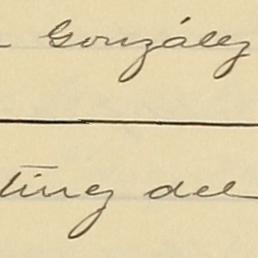 González
tínez del